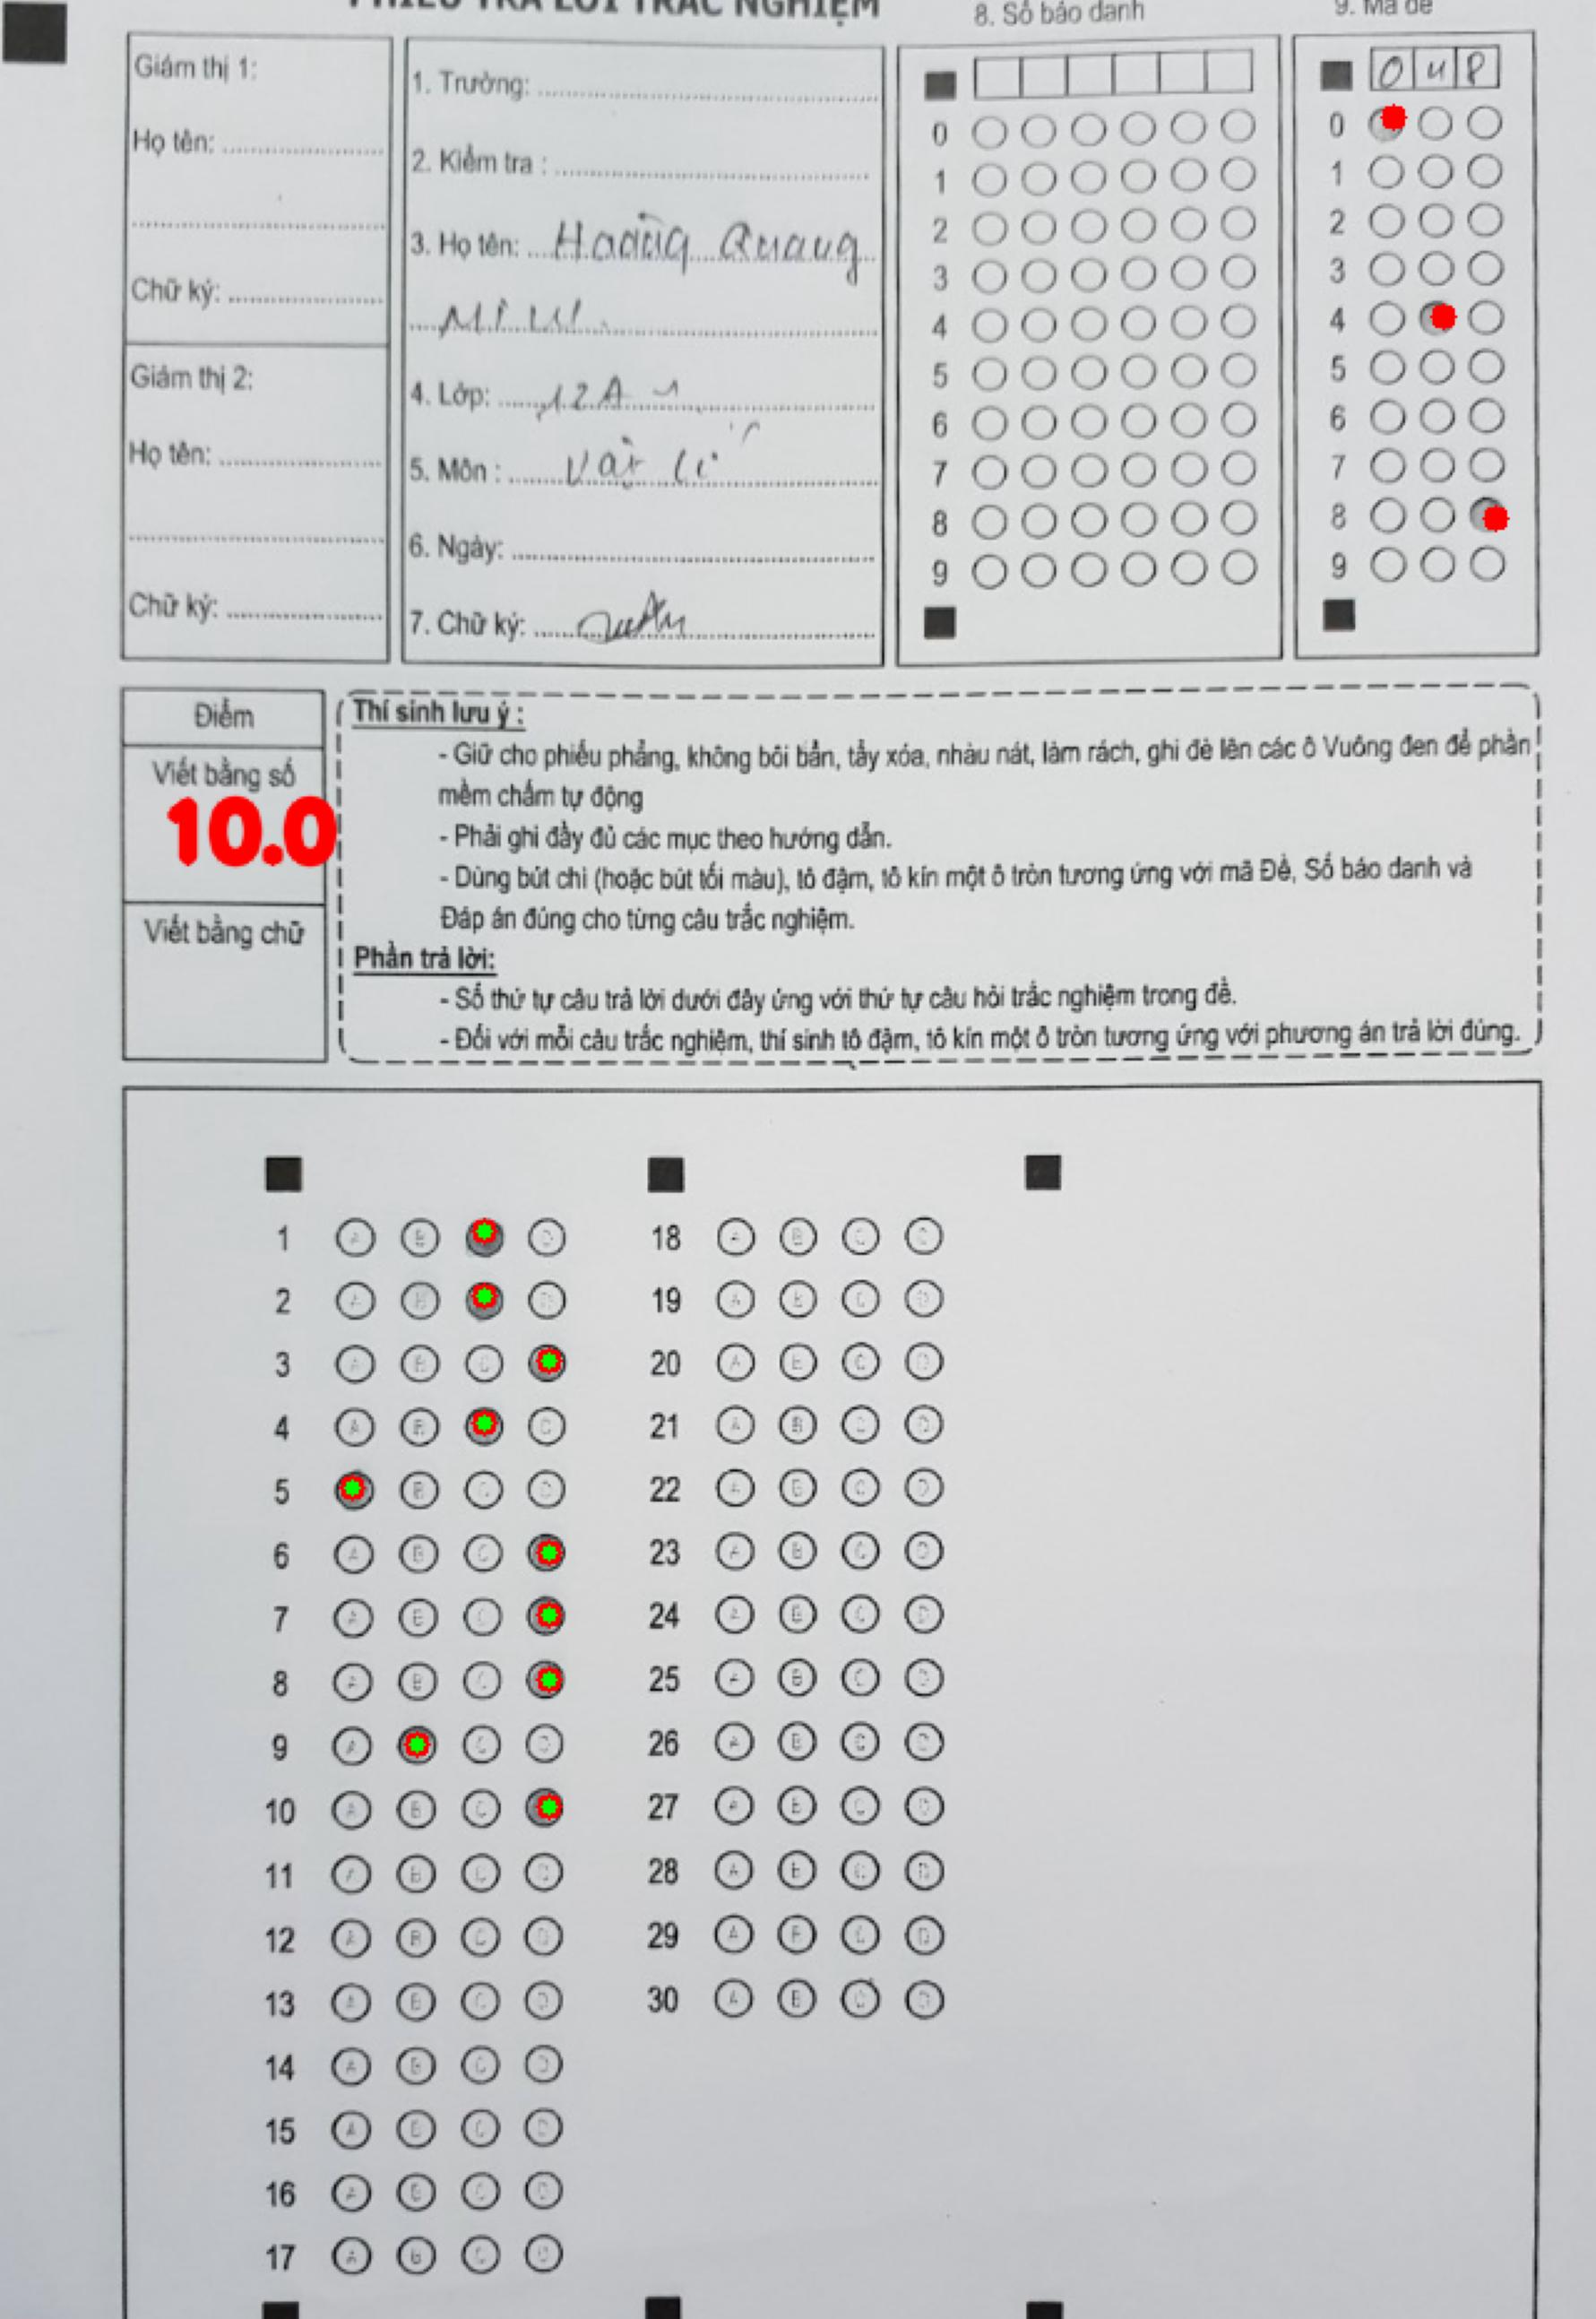 PHIẾU TRẢ LỜI TRẮC NGHIỆM
8. Số báo danh
9. Mã đề
Giám thị 1:
Họ tên:
Chữ ký:
Giám thị 2:
Họ tên:
Chữ ký:
1. Trường:
2. Kiểm tra :
3. Họ tên: Hoàng Quang
4. Lớp: 12A1
5. Môn : Vật lí
6. Ngày:
7. Chữ ký:
0
1
2
3
4
5
6
7
8
9
0 4 8
0
1
2
3
4
5
6
7
8
9
Điểm
Viết bằng số
10.0
Viết bằng chữ
Thí sinh lưu ý :
- Giữ cho phiếu phẳng, không bôi bẩn, tẩy xóa, nhàu nát, làm rách, ghi đè lên các ô Vuông đen để phần
mềm chấm tự động
- Phải ghi đầy đủ các mục theo hướng dẫn.
- Dùng bút chì (hoặc bút tối màu), tô đậm, tô kín một ô tròn tương ứng với mã Đề, Số báo danh và
Đáp án đúng cho từng câu trắc nghiệm.
Phần trả lời:
- Số thứ tự câu trả lời dưới đây ứng với thứ tự câu hỏi trắc nghiệm trong đề.
- Đối với mỗi câu trắc nghiệm, thí sinh tô đậm, tô kín một ô tròn tương ứng với phương án trả lời đúng.
1 A B D
2 A B D
3 A B C
4 A B D
5 B C D
6 A B C
7 A B C
8 A B C
9 A C D
10 A B C
11 A B C D
12 A B C D
13 A B C D
14 A B C D
15 A B C D
16 A B C D
17 A B C D
18 A B C D
19 A B C D
20 A B C D
21 A B C D
22 A B C D
23 A B C D
24 A B C D
25 A B C D
26 A B C D
27 A B C D
28 A B C D
29 A B C D
30 A B C D